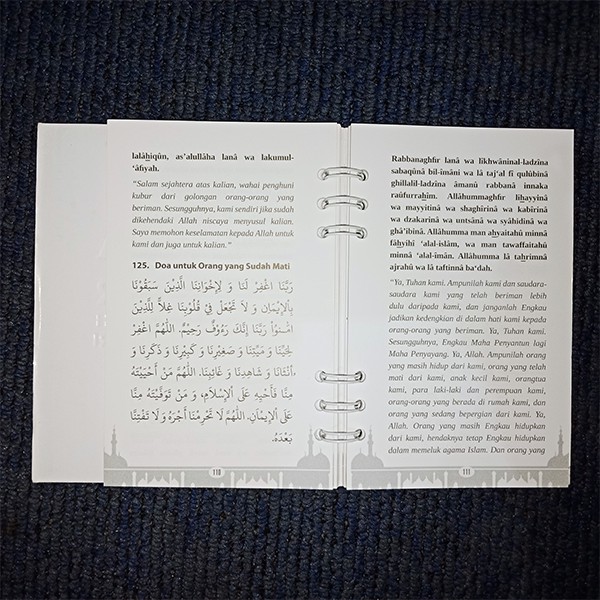 lalâhiqûn, as'alullâha lanâ wa lakumul-
'âfiyah.
“Salam sejahtera atas kalian, wahai penghuni
kubur dari golongan orang-orang yang
beriman. Sesungguhnya, kami sendiri jika sudah
dikehendaki Allah niscaya menyusul kalian.
Saya memohon keselamatan kepada Allah untuk
kami dan juga untuk kalian.”
125. Doa untuk Orang yang Sudah Mati
رَبَّنَا اغْفِرْ لَنَا وَ لِإِخْوَانِنَا الَّذِيْنَ سَبَقُوْنَا
بِالْإِيْمَانِ وَ لَا تَجْعَلْ فِيْ قُلُوْبِنَا غِلًّا لِلَّذِيْنَ
اٰمَنُوْا رَبَّنَا إِنَّكَ رَءُوْفٌ رَحِيْمٌ. اَللّٰهُمَّ اغْفِرْ
لِحَيِّنَا وَ مَيِّتِنَا وَ صَغِيْرِنَا وَ كَبِيْرِنَا وَ ذَكَرِنَا وَ
أُنْثَانَا وَ شَاهِدِنَا وَ غَائِبِنَا. اَللّٰهُمَّ مَنْ أَحْيَيْتَهُ
مِنَّا فَأَحْيِهِ عَلَى الْإِسْلَامِ، وَ مَنْ تَوَفَّيْتَهُ مِنَّا
عَلَى الْإِيْمَانِ. اَللّٰهُمَّ لَا تَحْرِمْنَا أَجْرَهُ وَ لَا تَفْتِنَّا
بَعْدَهُ.
110
Rabbanaghfir lanâ wa likhwâninal-ladzîna
sabaqûnâ bil-îmâni wa lâ taj'al fî qulûbinâ
ghillalil-ladzîna âmanû rabbanâ innaka
raûfurrahîm. Allâhummaghfir lihayyinâ
wa mayyitinâ wa shaghîrinâ wa kabîrinâ
wa dzakarinâ wa untsânâ wa syâhidinâ wa
ghâ'ibinâ. Allâhumma man ahyaitahû minnâ
fâhyihî 'alal-islâm, wa man tawaffaitahû
minnâ 'alal-îmân. Allâhumma lâ tahrimnâ
ajrahû wa lâ taftinnâ ba'dah.
“Ya, Tuhan kami. Ampunilah kami dan saudara-
saudara kami yang telah beriman lebih
dulu daripada kami, dan janganlah Engkau
jadikan kedengkian di dalam hati kami kepada
orang-orang yang beriman. Ya, Tuhan kami.
Sesungguhnya, Engkau Maha Penyantun lagi
Maha Penyayang. Ya, Allah. Ampunilah orang
yang masih hidup dari kami, orang yang telah
mati dari kami, anak kecil kami, orangtua
kami, para laki-laki dan perempuan kami,
orang-orang yang berada di rumah kami, dan
orang yang sedang bepergian dari kami. Ya,
Allah. Orang yang masih Engkau hidupkan
dari kami, hendaknya tetap Engkau hidupkan
dalam memeluk agama Islam. Dan orang yang
111